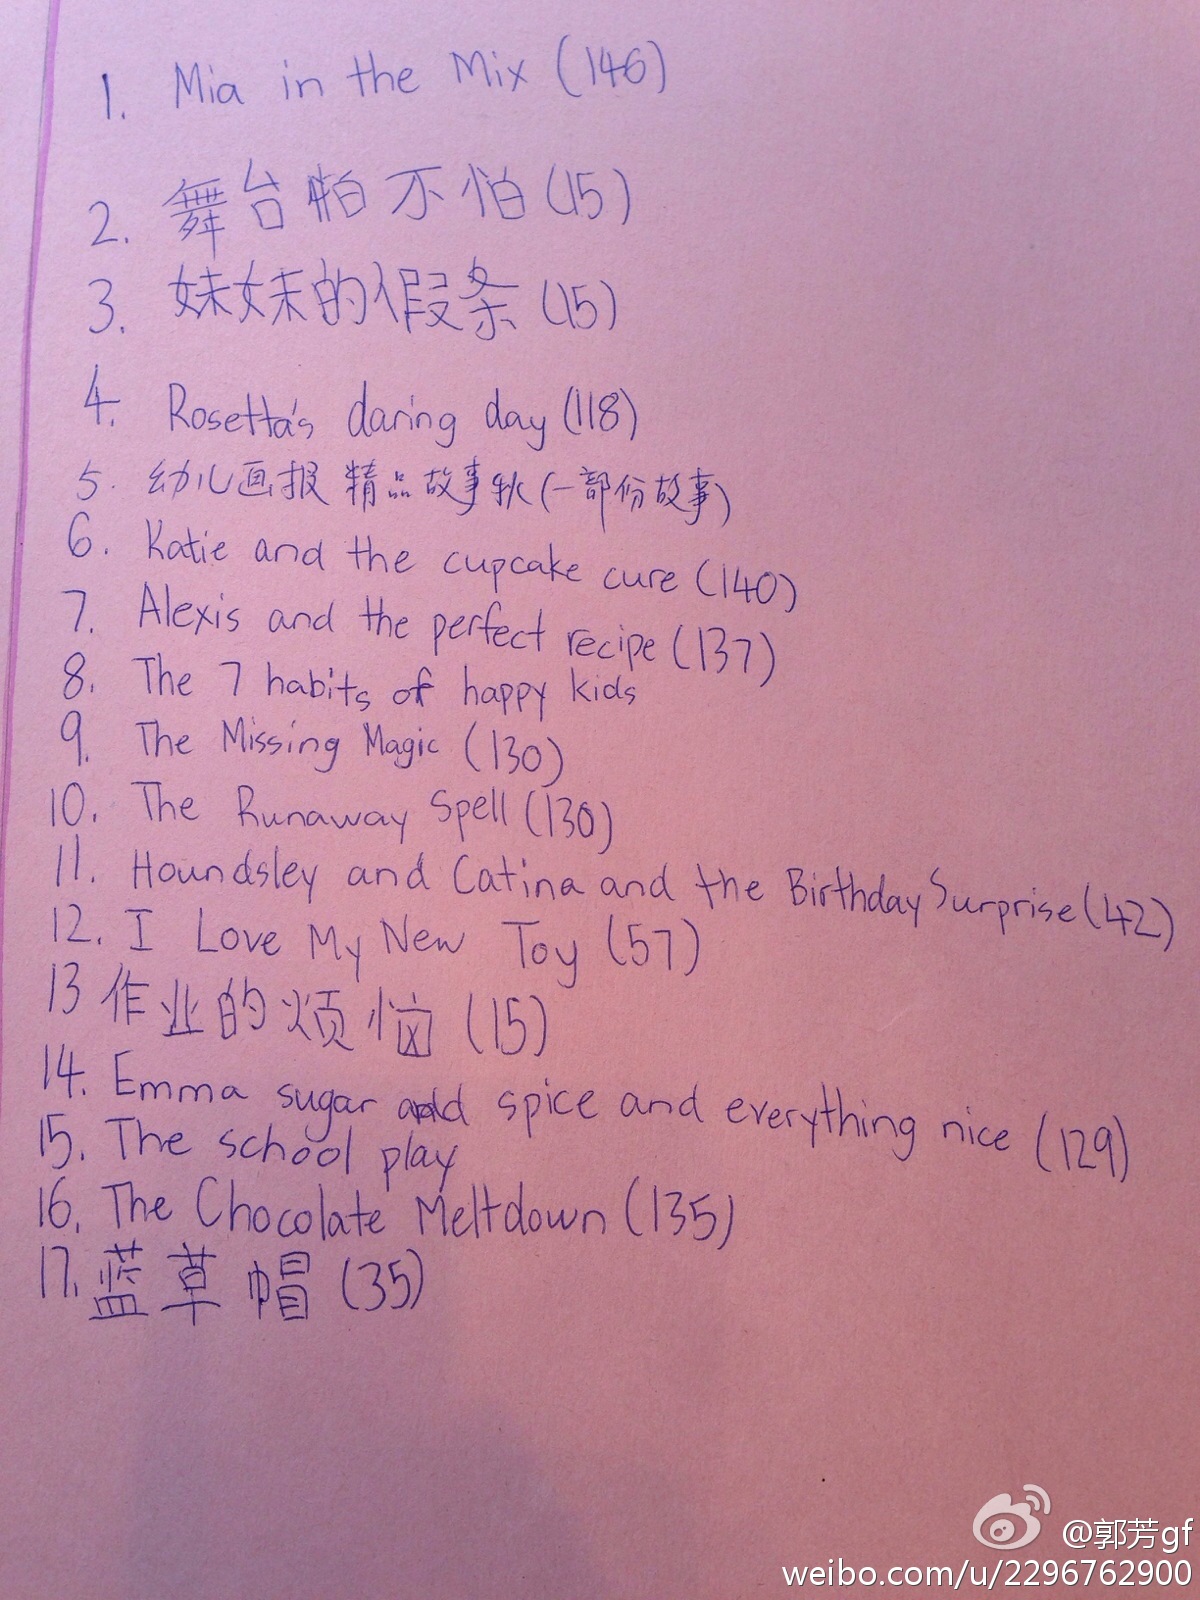 1. Mia in the Mix (146)
2. 舞台怕不怕(15)
3. 妹妹的假条(15)
4. Rosetta's daring day (118)
5. 幼儿画报 精品故事秋(一部份故事)
6. Katie and the cupcake cure (140)
7. Alexis and the perfect recipe (137)
8. The 7 habits of happy kids
9. The Missing Magic (130)
10. The Runaway Spell (130)
11. Houndsley and Catina and the Birthday Surprise (42)
12. I Love My New Toy (57)
13 作业的烦恼 (15)
14. Emma sugar and spice and everything nice (129)
15. The school play
16. The Chocolate Meltdown (135)
17. 蓝草帽 (35)
@郭芳gf
weibo.com/u/2296762900